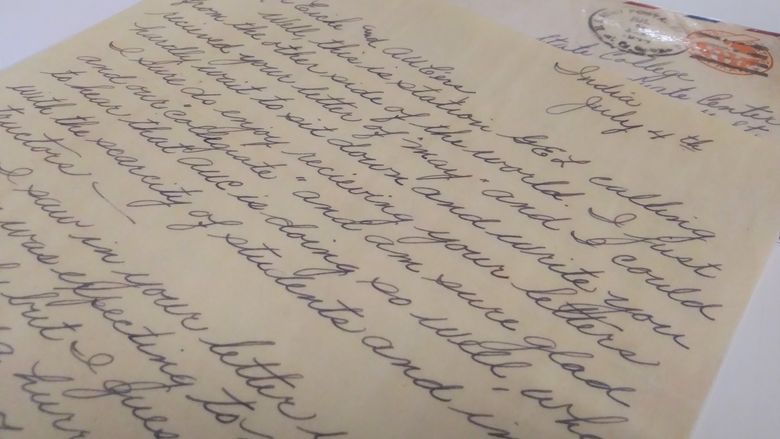 State College
India
July 4th
and
Well, this is station calling
from the other side of the world. I just
recieved your letter of May and I could
hardly wait to sit down and write you
I sure do enjoy recieving your letters
and our "collegiate" and am sure glad
to hear that is doing so well, wha
with the scarcity of students and in
tructors —
I saw in your letter
was effecting to
but I gues
hurr